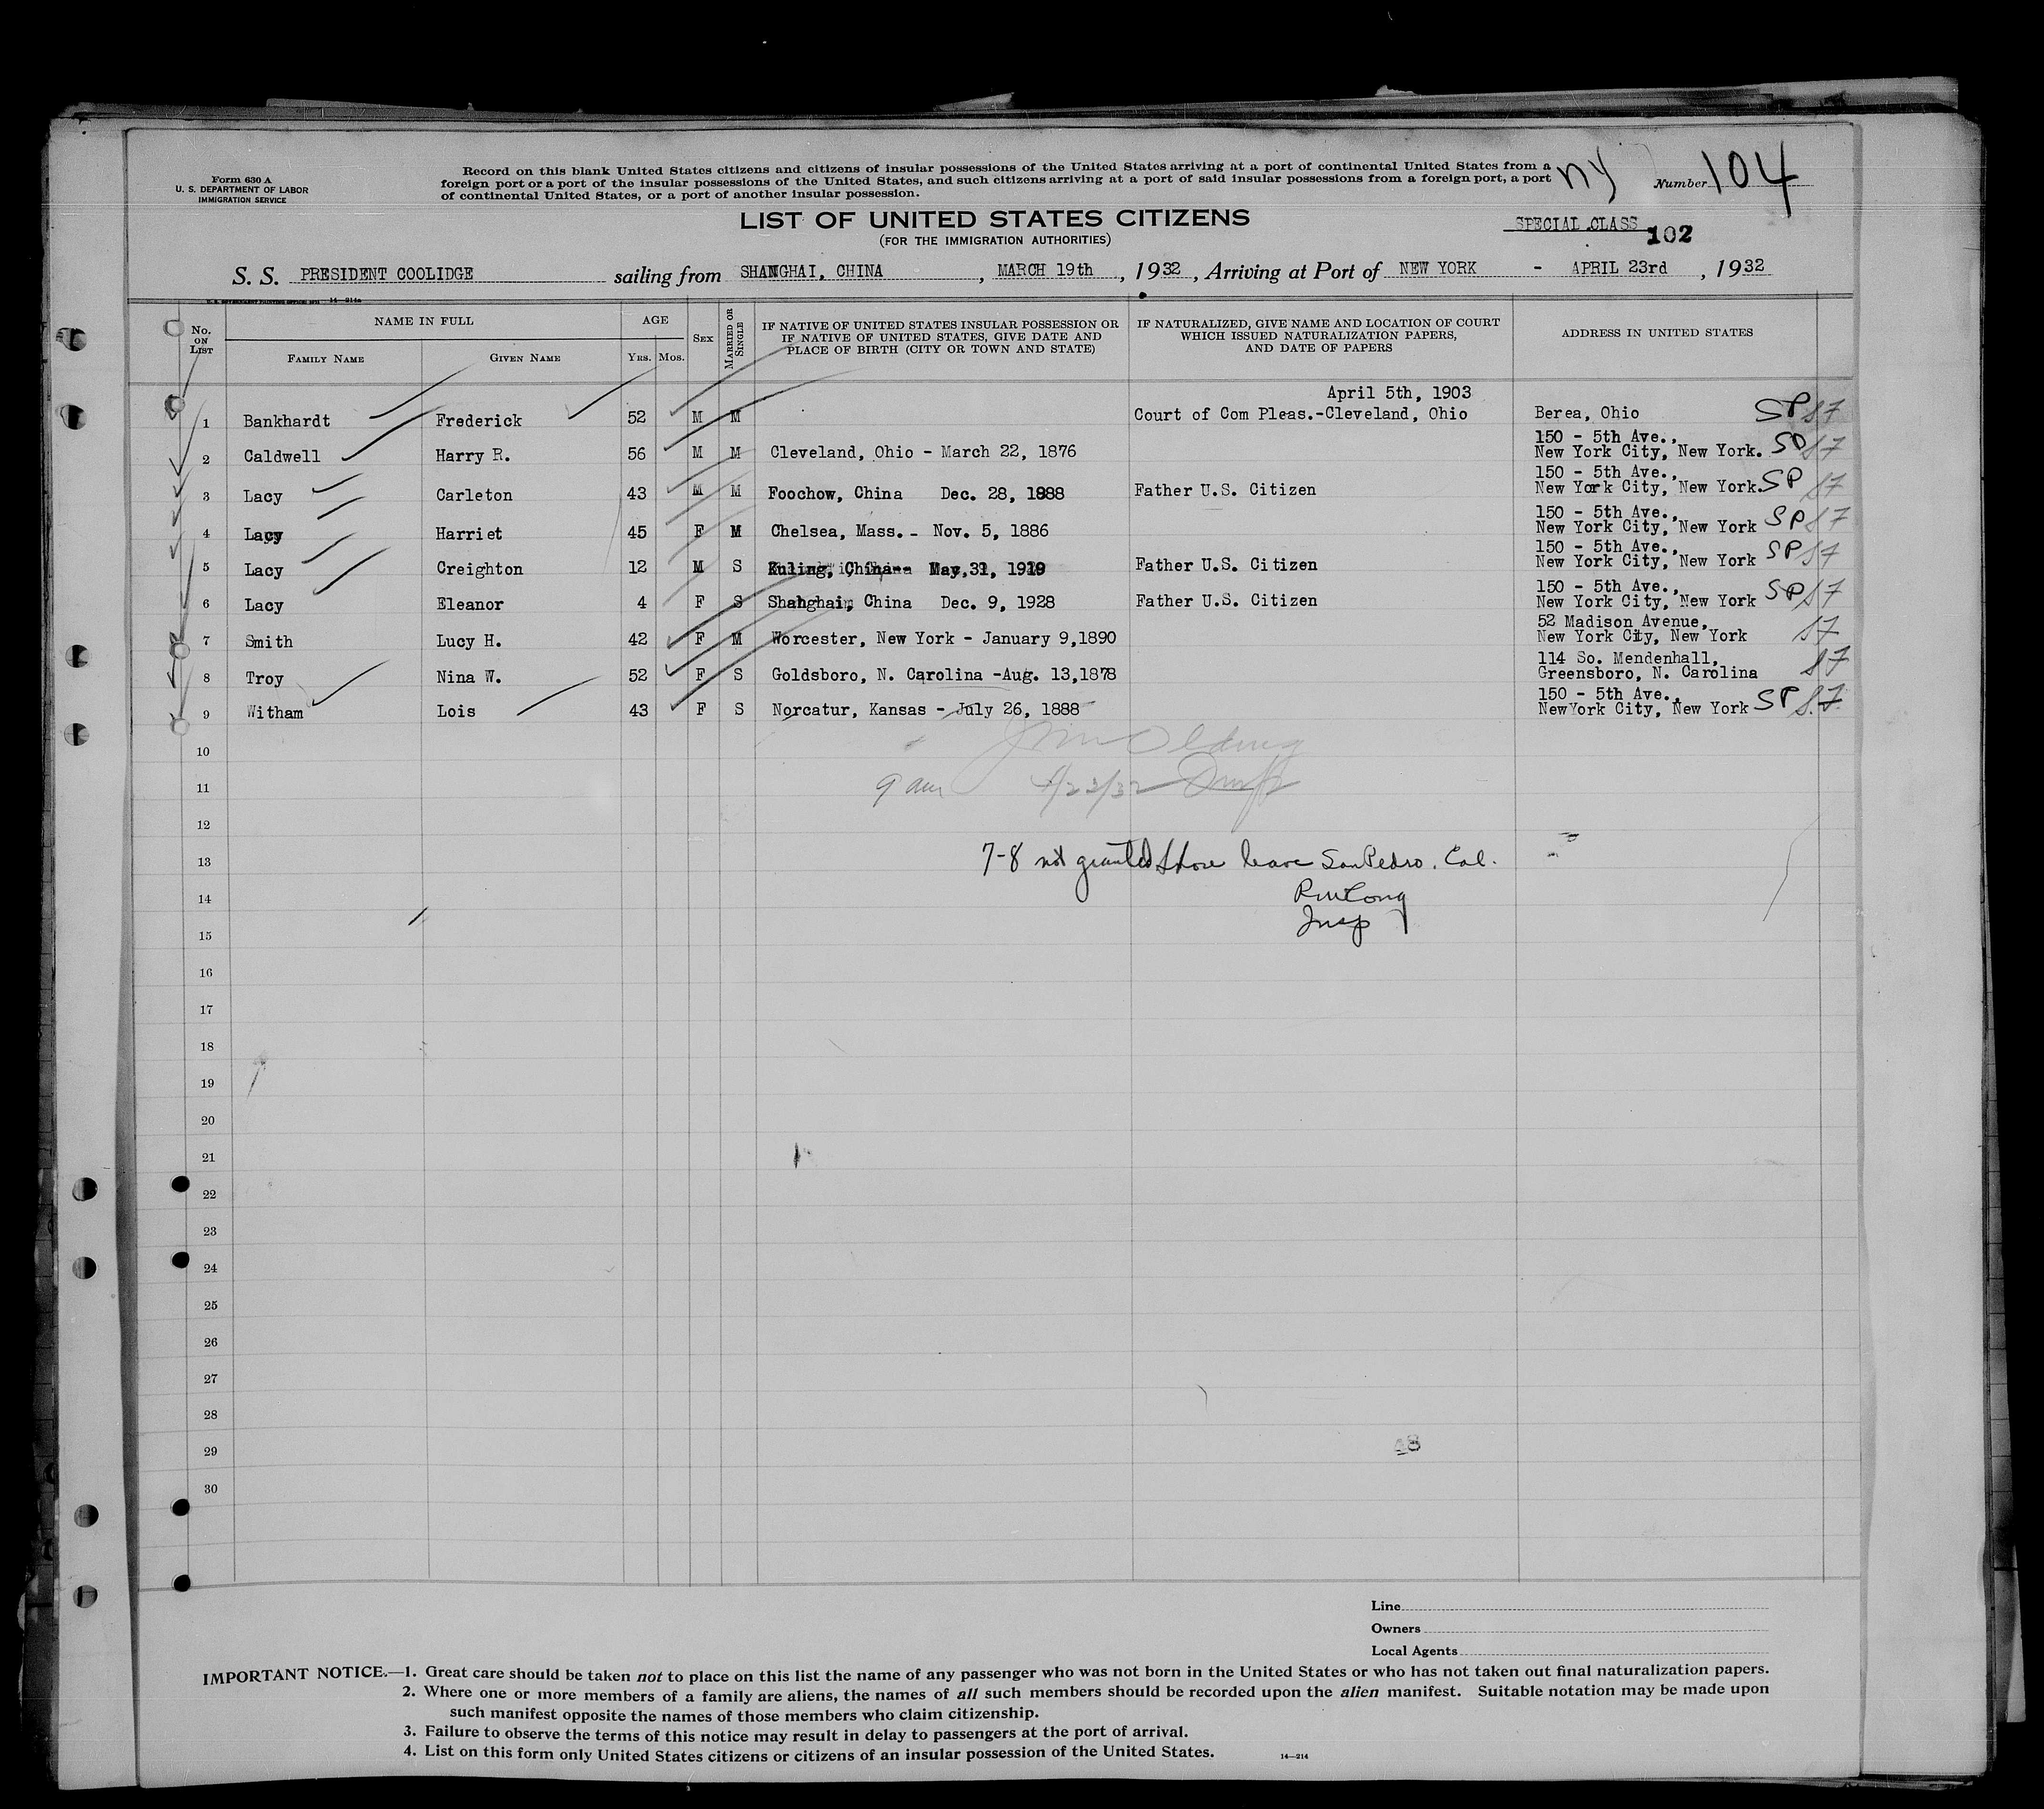 Form 630 A
U. S. DEPARTMENT OF LABOR
IMMIGRATION SERVICE
Record on this blank United States citizens and citizens of insular possessions of the United States arriving at a port of continental United States from a
foreign port or a port of the insular possessions of the United States, and such citizens arriving at a port of said insular possessions from a foreign port, a port
of continental United States, or a port of another insular possession.
ny
Number 104
LIST OF UNITED STATES CITIZENS
(FOR THE IMMIGRATION AUTHORITIES)
SPECIAL CLASS 102
S. S. PRESIDENT COOLIDGE sailing from SHANGHAI, CHINA, MARCH 19th, 1932, Arriving at Port of NEW YORK - APRIL 23rd, 1932
No. ON LIST
NAME IN FULL
FAMILY NAME GIVEN NAME
AGE
YRS. MOS.
SEX
MARRIED OR SINGLE
IF NATIVE OF UNITED STATES INSULAR POSSESSION OR
IF NATIVE OF UNITED STATES, GIVE DATE AND
PLACE OF BIRTH (CITY OR TOWN AND STATE)
IF NATURALIZED, GIVE NAME AND LOCATION OF COURT
WHICH ISSUED NATURALIZATION PAPERS,
AND DATE OF PAPERS
ADDRESS IN UNITED STATES
April 5th, 1903
1 Bankhardt Frederick 52 M M Court of Com Pleas.-Cleveland, Ohio Berea, Ohio SP
150 - 5th Ave.,
2 Caldwell Harry R. 56 M M Cleveland, Ohio - March 22, 1876 New York City, New York. SP
150 - 5th Ave.,
3 Lacy Carleton 43 M M Foochow, China Dec. 28, 1888 Father U.S. Citizen New York City, New York. SP
150 - 5th Ave.,
4 Lacy Harriet 45 F M Chelsea, Mass. - Nov. 5, 1886 New York City, New York SP
150 - 5th Ave.,
5 Lacy Creighton 12 M S Kuling, China-- May, 31, 1919 Father U.S. Citizen New York City, New York SP
150 - 5th Ave.,
6 Lacy Eleanor 4 F S Shanghai, China Dec. 9, 1928 Father U.S. Citizen New York City, New York SP
52 Madison Avenue,
7 Smith Lucy H. 42 F M Worcester, New York - January 9,1890 New York City, New York
114 So. Mendenhall,
8 Troy Nina W. 52 F S Goldsboro, N. Carolina -Aug. 13,1878 Greensboro, N. Carolina
150 - 5th Ave.,
9 Witham Lois 43 F S Norcatur, Kansas - July 26, 1888 NewYork City, New York SP
10
11 9 am 4/23/32
12
13 7-8 not granted shore leave San Pedro. Cal.
14
15 Insp
16
17
18
19
20
21
22
23
24
25
26
27
28
29
30
Line
Owners
Local Agents
IMPORTANT NOTICE.—1. Great care should be taken not to place on this list the name of any passenger who was not born in the United States or who has not taken out final naturalization papers.
2. Where one or more members of a family are aliens, the names of all such members should be recorded upon the alien manifest. Suitable notation may be made upon
such manifest opposite the names of those members who claim citizenship.
3. Failure to observe the terms of this notice may result in delay to passengers at the port of arrival.
4. List on this form only United States citizens or citizens of an insular possession of the United States.
14—214